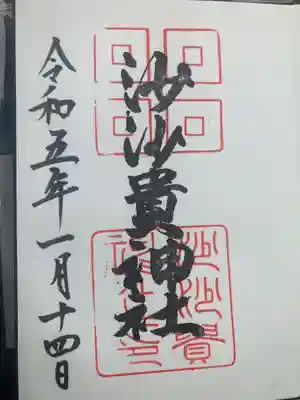 沙沙貴神社
令和五年一月十四日
沙沙貴
神社之印